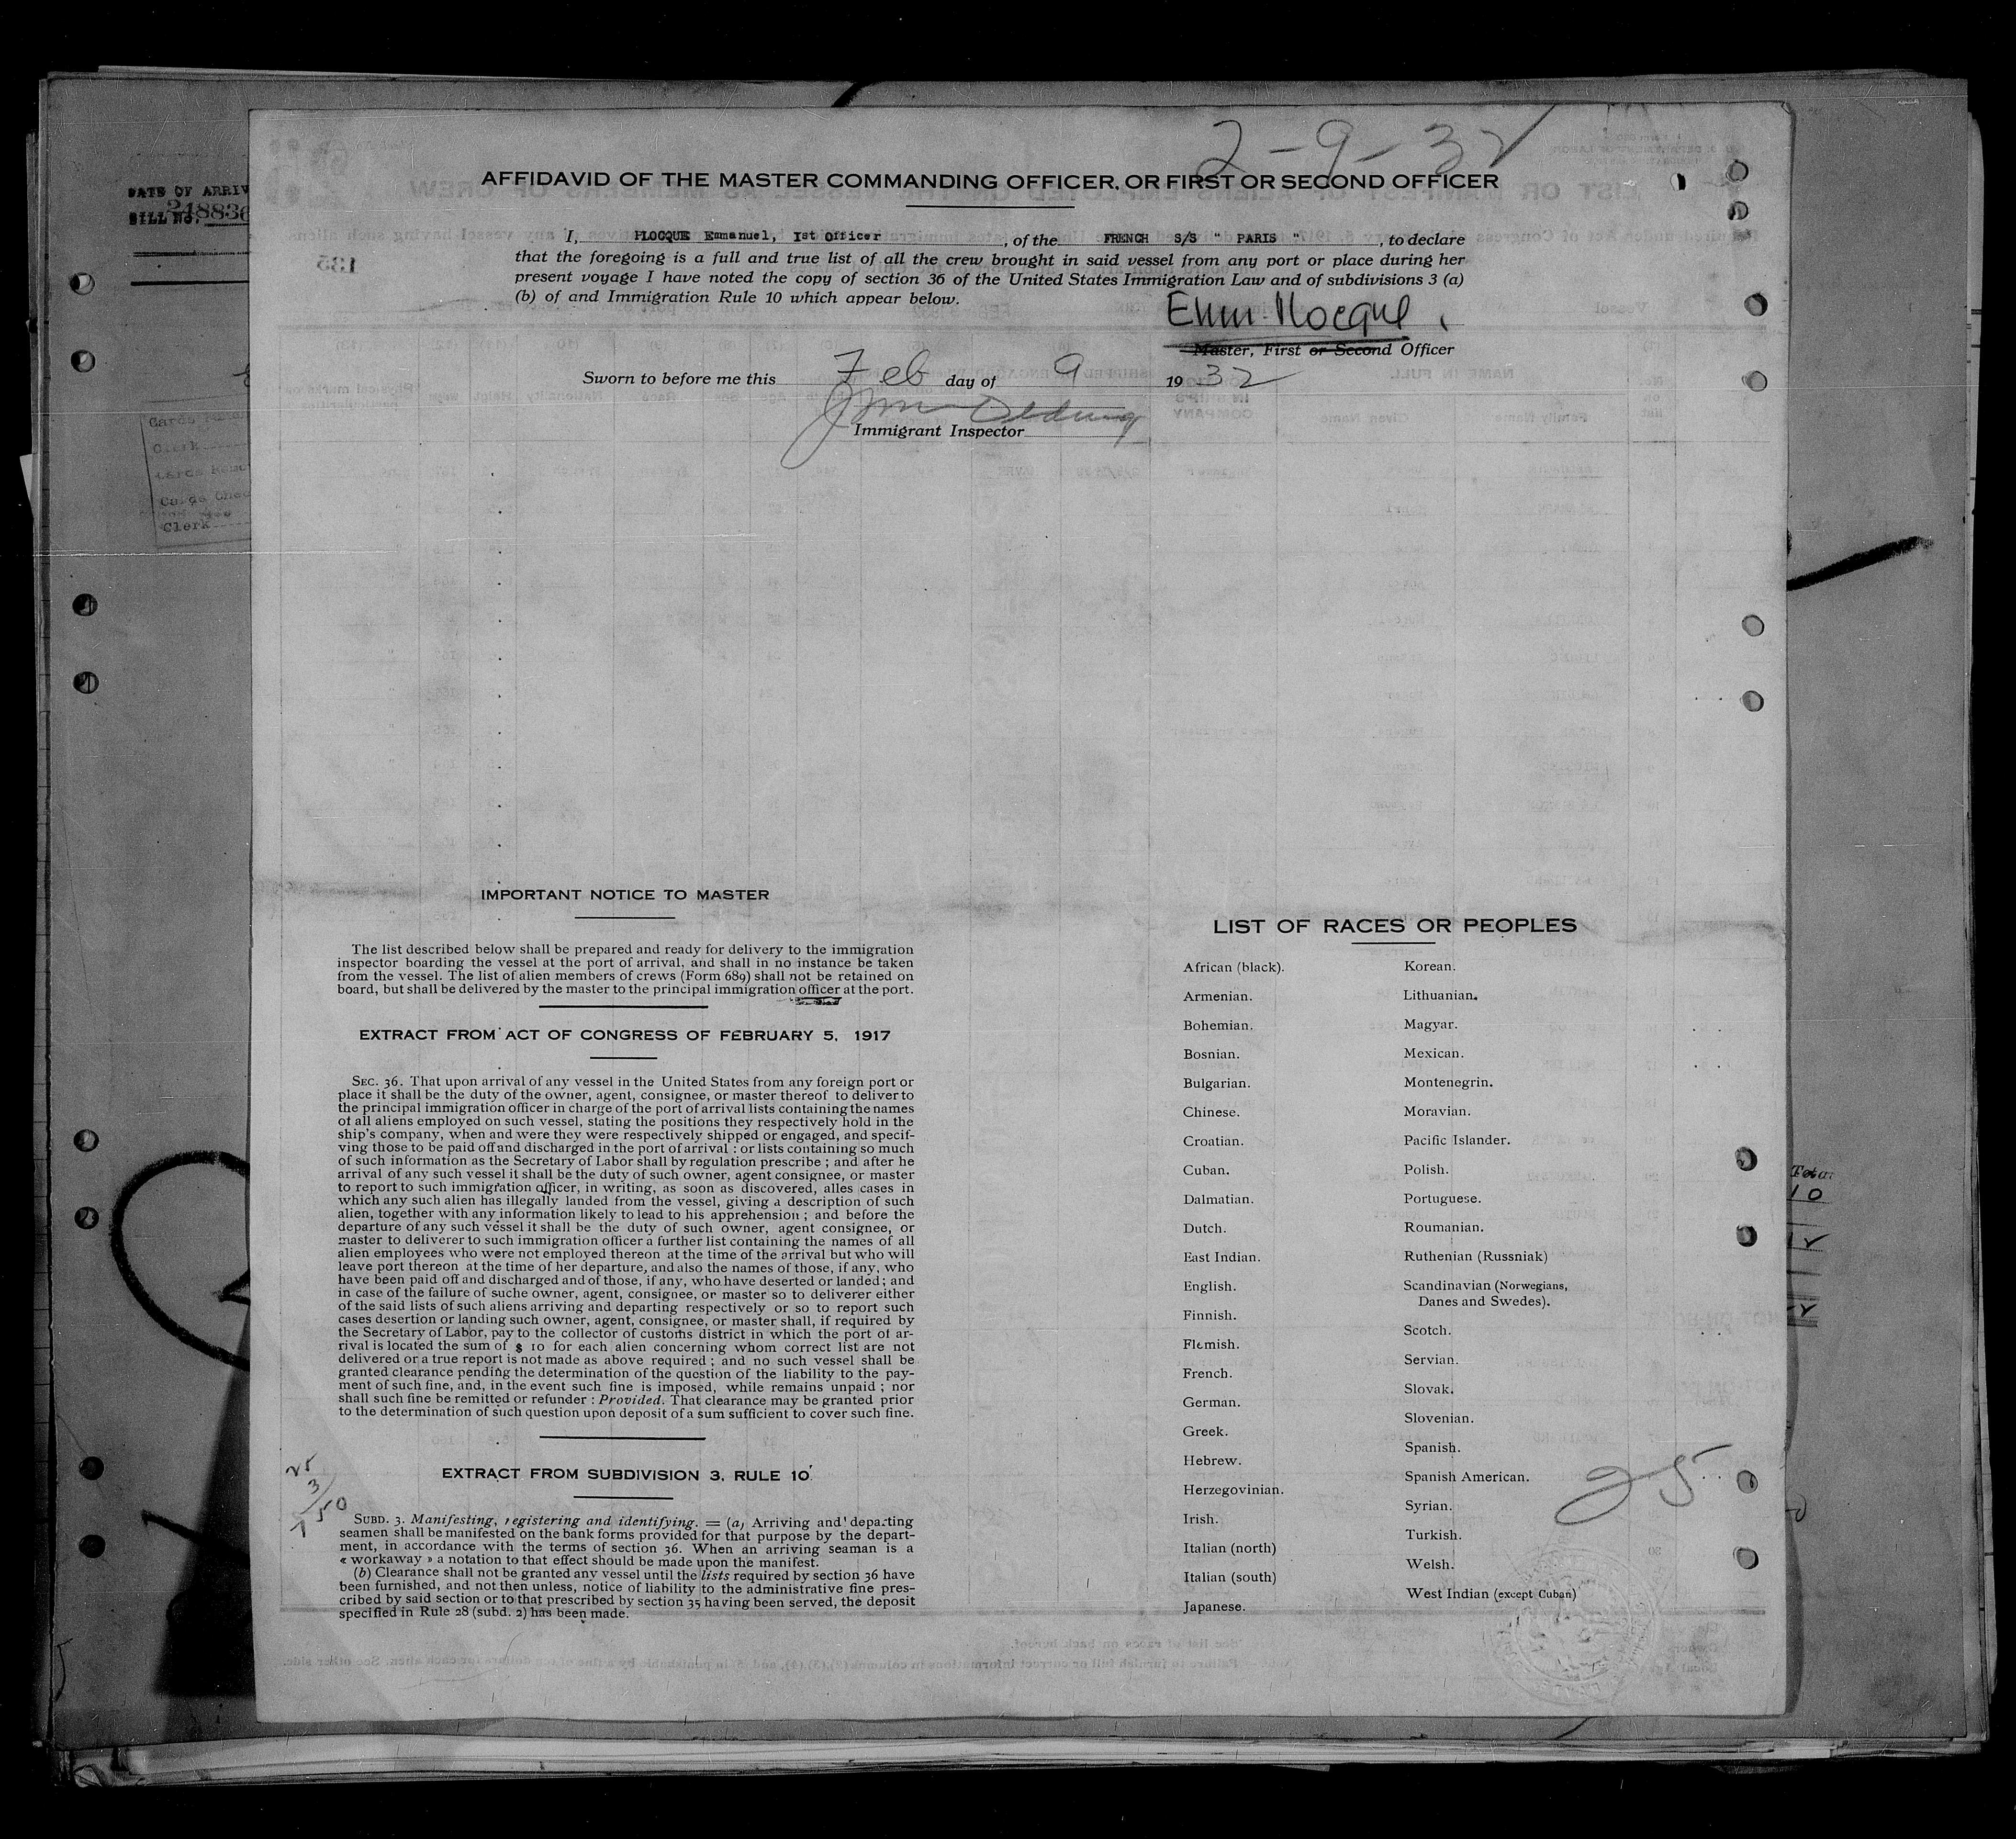 2-9-32
AFFIDAVID OF THE MASTER COMMANDING OFFICER, OR FIRST OR SECOND OFFICER
DATE OF ARRIV
BILL NO. 248836
I, PLOCQUE Emmanuel, Ist Officer, of the FRENCH S/S " PARIS ", to declare
that the foregoing is a full and true list of all the crew brought in said vessel from any port or place during her
present voyage I have noted the copy of section 36 of the United States Immigration Law and of subdivisions 3 (a)
(b) of and Immigration Rule 10 which appear below.
Master, First or Second Officer
Sworn to before me this Feb day of 9 19 32
Immigrant Inspector
Clerk
Clerk
IMPORTANT NOTICE TO MASTER
The list described below shall be prepared and ready for delivery to the immigration
inspector boarding the vessel at the port of arrival, and shall in no instance be taken
from the vessel. The list of alien members of crews (Form 689) shall not be retained on
board, but shall be delivered by the master to the principal immigration officer at the port.
EXTRACT FROM ACT OF CONGRESS OF FEBRUARY 5, 1917
SEC. 36. That upon arrival of any vessel in the United States from any foreign port or
place it shall be the duty of the owner, agent, consignee, or master thereof to deliver to
the principal immigration officer in charge of the port of arrival lists containing the names
of all aliens employed on such vessel, stating the positions they respectively hold in the
ship's company, when and were they were respectively shipped or engaged, and specif-
ying those to be paid off and discharged in the port of arrival : or lists containing so much
of such information as the Secretary of Labor shall by regulation prescribe ; and after he
arrival of any such vessel it shall be the duty of such owner, agent consignee, or master
to report to such immigration officer, in writing, as soon as discovered, alles cases in
which any such alien has illegally landed from the vessel, giving a description of such
alien, together with any information likely to lead to his apprehension ; and before the
departure of any such vessel it shall be the duty of such owner, agent consignee, or
master to deliverer to such immigration officer a further list containing the names of all
alien employees who were not employed thereon at the time of the arrival but who will
leave port thereon at the time of her departure, and also the names of those, if any, who
have been paid off and discharged and of those, if any, who have deserted or landed ; and
in case of the failure of suche owner, agent, consignee, or master so to deliverer either
of the said lists of such aliens arriving and departing respectively or so to report such
cases desertion or landing such owner, agent, consignee, or master shall, if required by
the Secretary of Labor, pay to the collector of customs district in which the port of ar-
rival is located the sum of $ 10 for each alien concerning whom correct list are not
delivered or a true report is not made as above required ; and no such vessel shall be
granted clearance pending the determination of the question of the liability to the pay-
ment of such fine, and, in the event such fine is imposed, while remains unpaid ; nor
shall such fine be remitted or refunder : Provided. That clearance may be granted prior
to the determination of such question upon deposit of a sum sufficient to cover such fine.
EXTRACT FROM SUBDIVISION 3, RULE 10
SUBD. 3. Manifesting, registering and identifying. = (a) Arriving and departing
seamen shall be manifested on the bank forms provided for that purpose by the depart-
ment, in accordance with the terms of section 36. When an arriving seaman is a
« workaway » a notation to that effect should be made upon the manifest.
(b) Clearance shall not be granted any vessel until the lists required by section 36 have
been furnished, and not then unless, notice of liability to the administrative fine pres-
cribed by said section or to that prescribed by section 35 having been served, the deposit
specified in Rule 28 (subd. 2) has been made.
LIST OF RACES OR PEOPLES
African (black).
Armenian.
Bohemian.
Bosnian.
Bulgarian.
Chinese.
Croatian.
Cuban.
Dalmatian.
Dutch.
East Indian.
English.
Finnish.
Flemish.
French.
German.
Greek.
Hebrew.
Herzegovinian.
Irish.
Italian (north)
Italian (south)
Japanese.
Korean.
Lithuanian.
Magyar.
Mexican.
Montenegrin.
Moravian.
Pacific Islander.
Polish.
Portuguese.
Roumanian.
Ruthenian (Russniak)
Scandinavian (Norwegians,
Danes and Swedes).
Scotch.
Servian.
Slovak.
Slovenian.
Spanish.
Spanish American.
Syrian.
Turkish.
Welsh.
West Indian (except Cuban)
25